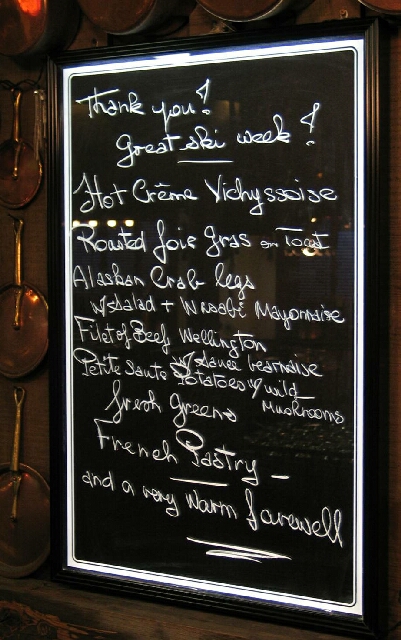 Thank you!
Great ski week!
Hot Crème Vichyssoise
Roasted foie gras on Toast
Alaskan Crab legs
w/Salad + Wasabi Mayonnaise
Filet of Beef Wellington
w/ sauce bearnaise
Petite Sauté Potatoes w/ wild
Mushrooms
fresh Greens
French Pastry –
and a very warm farewell